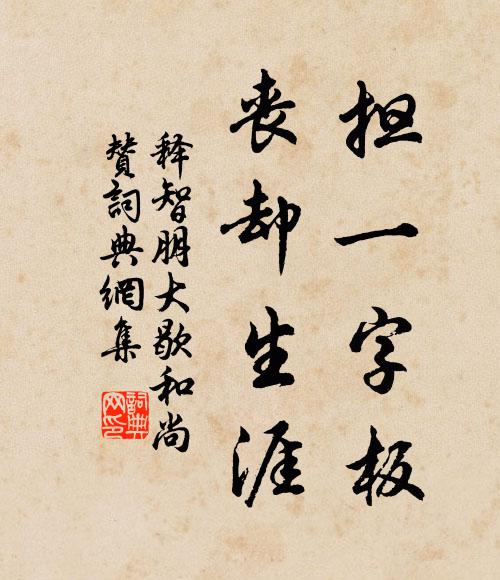 担一字板
丧却生涯
释智朋大歇和尚
赞詞典網集
詞典
网印